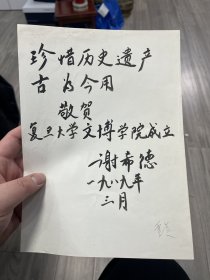 珍惜历史遗产
古为今用
敬贺
复旦大学文博学院成立
谢希德
一九八九年
三月